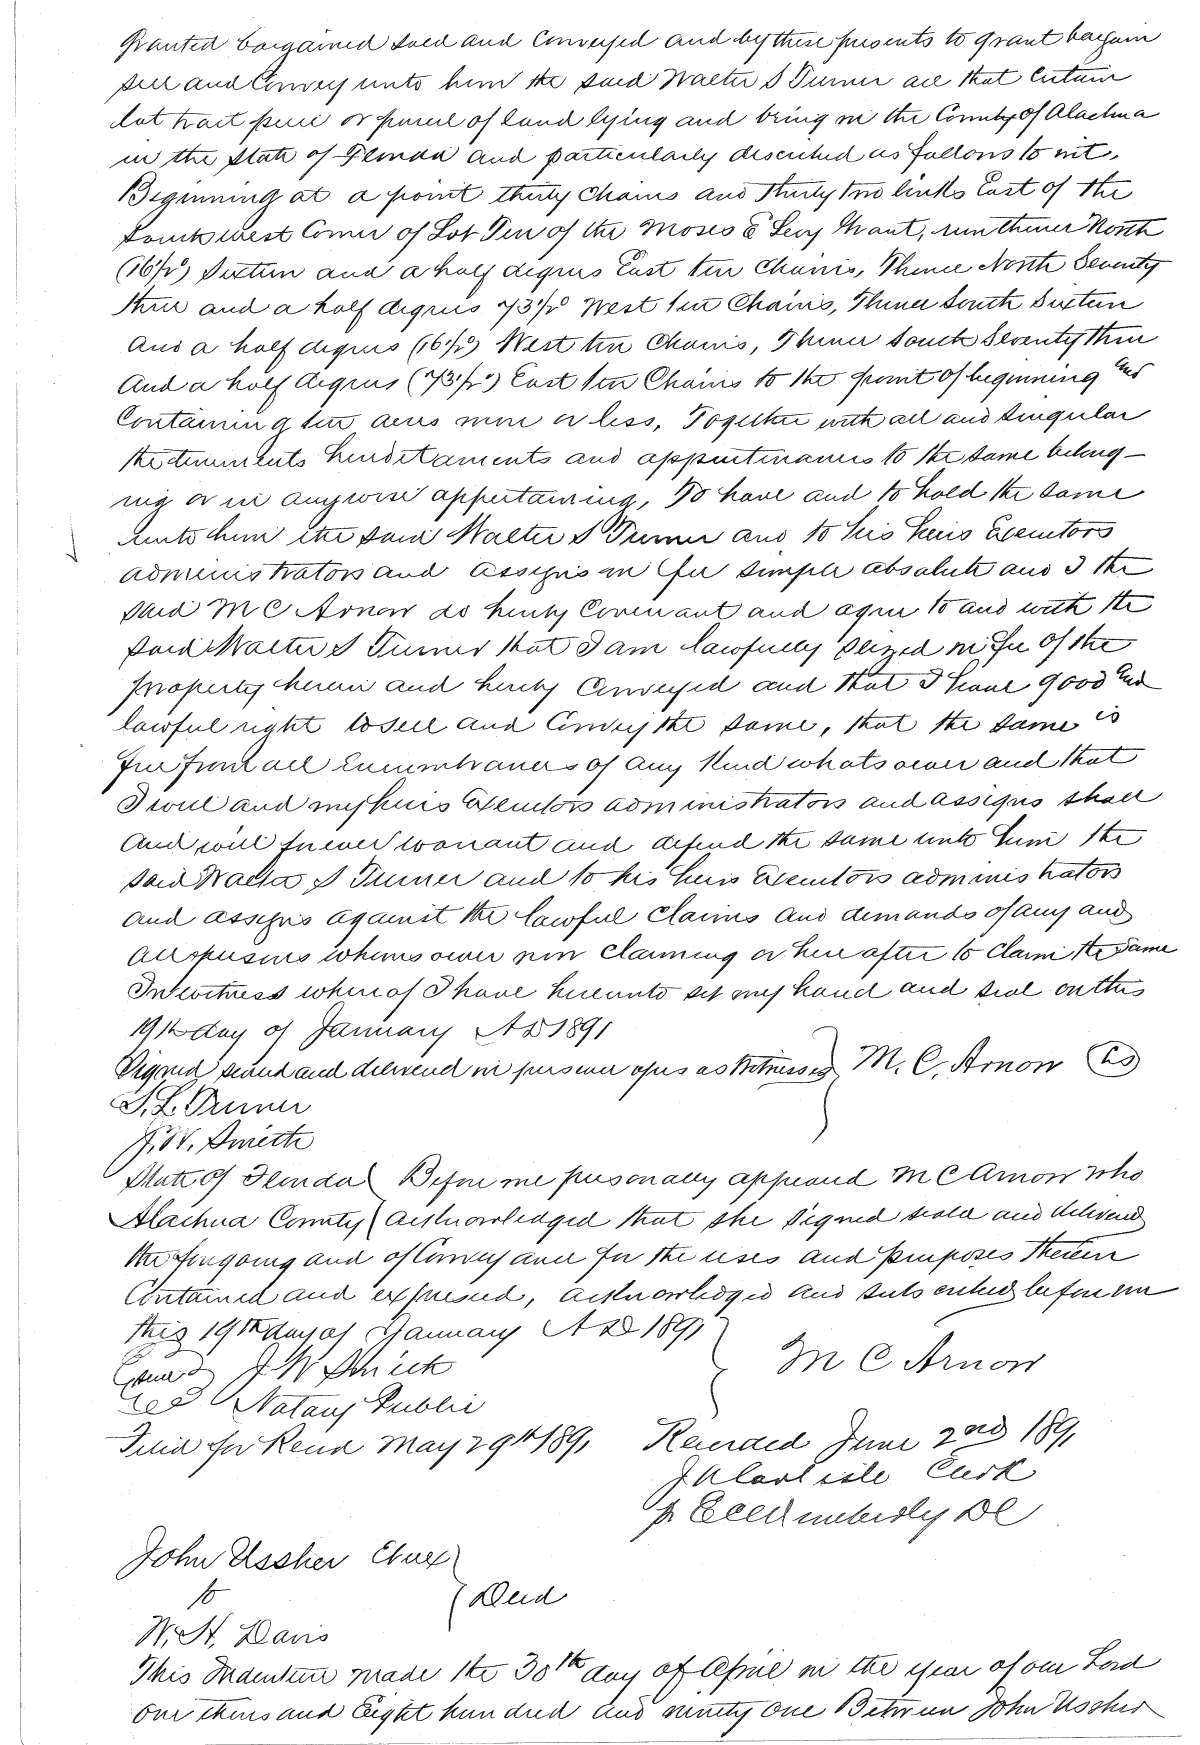 Granted bargained sold and Conveyed and by these presents to grant bargain
sell and Convey unto him the said Walter S Turner all that Certain
lot tract piece or parcel of land lying and being in the County of Alachua
in the State of Florida and particularly described as follows to wit.
Beginning at a point thirty Chains and thirty two links East of the
South west Corner of Lot Ten of the Moses E Levy Grant, run thence North
(16½°) Sixteen and a half degrees East ten Chains, Thence North Seventy
three and a half degrees 73½° West ten Chains, Thence South Sixteen
and a half degrees (16½°) West ten Chains, Thence South Seventy three
and a half degrees (73½°) East ten Chains to the point of beginning and
Containing ten acres more or less, Together with all and singular
the tenements hereditaments and appurtenances to the same belong-
ing or in anywise appertaining, To have and to hold the same
unto him the said Walter S Turner and to his heirs Executors
administrators and assigns in fee simple absolute and I the
said M C Arnow do hereby Covenant and agree to and with the
said Walter S Turner that I am lawfully seized in fee of the
property herein and hereby Conveyed and that I have good and
lawful right to sell and Convey the same, that the same is
free from all Encumbrances of any Kind whatsoever and that
I will and my heirs Executors administrators and assigns shall
and will forever warrant and defend the same unto him the
said Walter S Turner and to his heirs Executors administrators
and assigns against the lawful Claims and demands of any and
all persons whomsoever now Claiming or here after to Claim the same
In witness whereof I have hereunto set my hand and seal on this
19th day of January AD 1891
Signed sealed and delivered in presence of us as Witnesses M. C. Arnow (LS)
S. L. Turner
J. W. Smith
State of Florida Before me personally appeared M C Arnow who
Alachua County acknowledged that she signed seald and delivered
the foregoing and of Conveyance for the uses and purposes therein
Contained and expressed, acknowledged and subscribed before me
this 19th day of January AD 1891
M C Arnow
J W Smith
Notary Public
Filed for Record May 29th 1891 Recorded June 2nd 1891
J A Carlisle Clerk
DC
John Ussher Etux
to Deed
W. H. Davis
This Indenture made the 30th day of April in the year of our Lord
one thousand Eight hundred and ninety one Between John Ussher